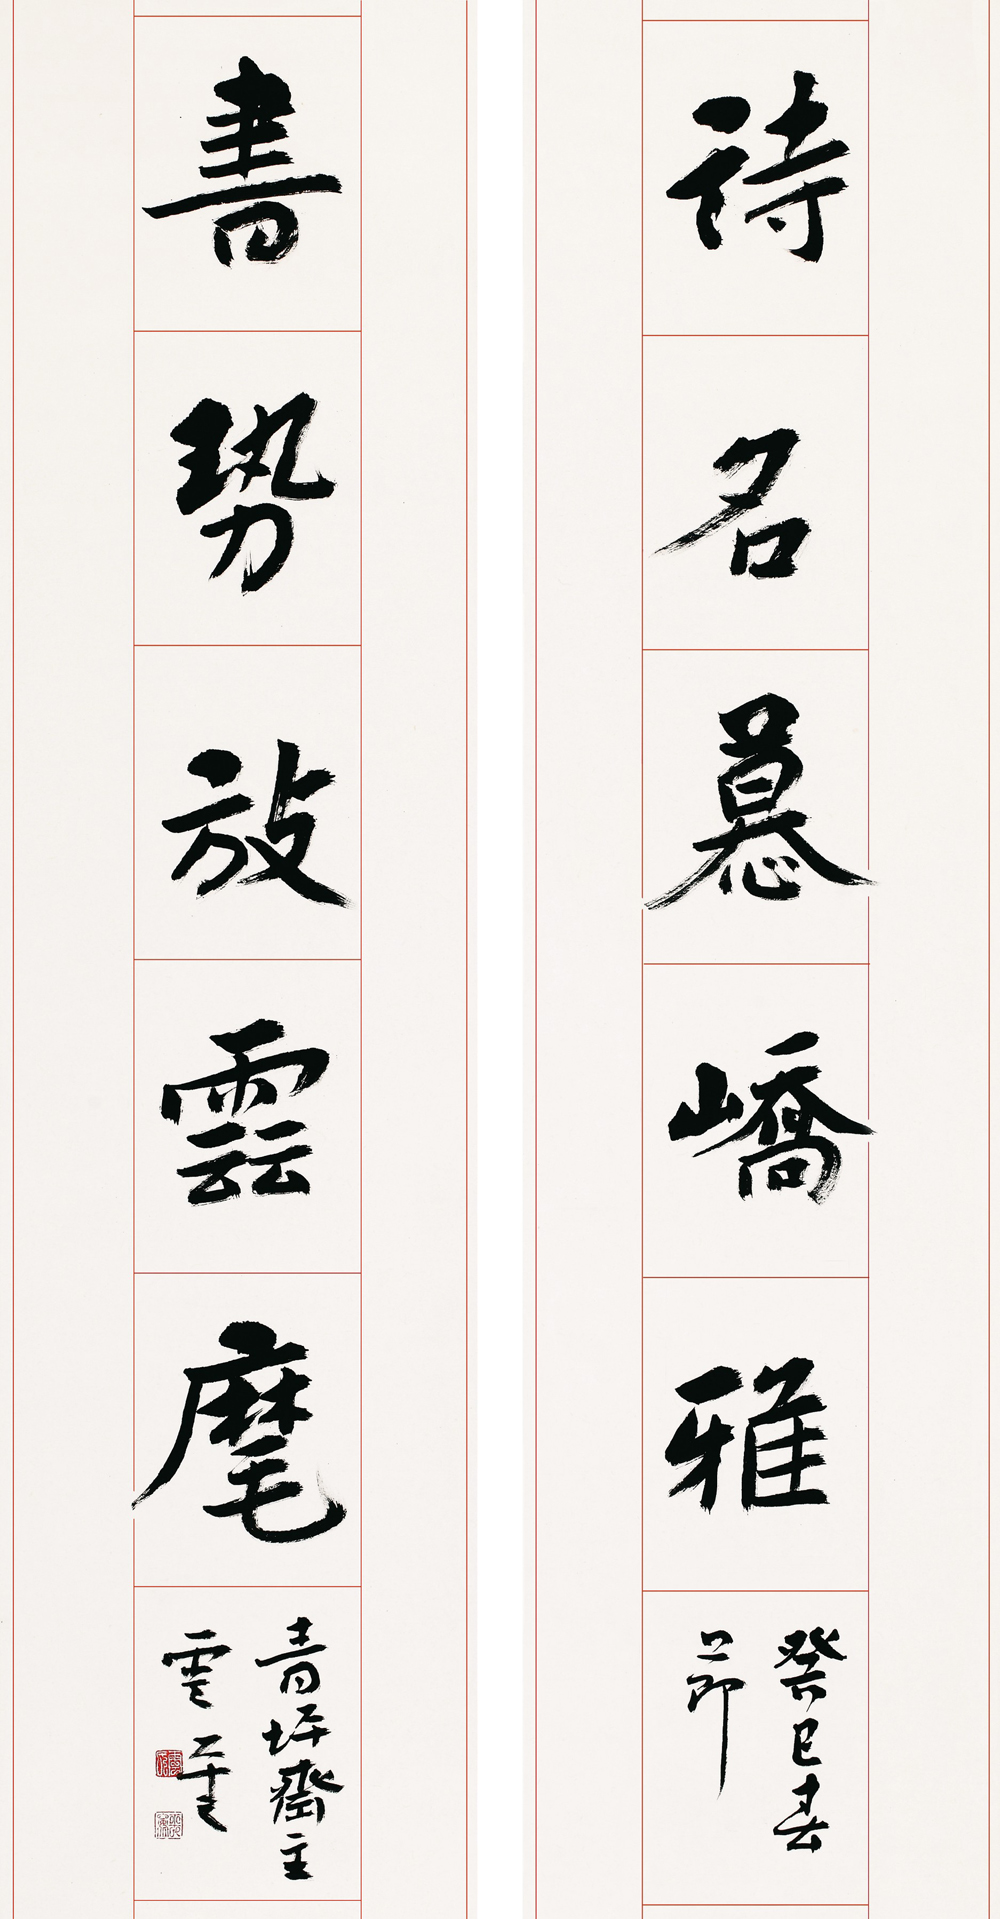 詩名慕嶠雅
癸巳春
節
書勢放雲麾
青坪齋主
雲